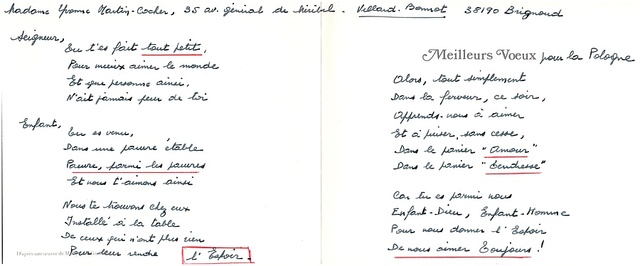 Madame Yvonne Martin-Cocher, 35 av. général de Miribel. Villard-Bonnot 38190 Brignoud
Seigneur,
Tu t'es fait tout petit,
Pour mieux aimer le monde
Et que personne ainsi,
N'ait jamais peur de toi
Enfant,
Tu es venu,
Dans une pauvre étable
Pauvre, parmi les pauvres
Et nous t'aimons ainsi
Nous te trouvons chez eux
Installé à la table
De ceux qui n'ont plus rien
Pour leur rendre l'Espoir.
D'après une oeuvre de
Meilleurs Voeux pour la Pologne
Alors, tout simplement
Dans la ferveur, ce soir,
Apprends-nous à aimer
Et à puiser, sans cesse,
Dans le panier "Amour"
Dans le panier "Tendresse"
Car tu es parmi nous
Enfant-Dieu, Enfant-Homme
Pour nous donner l'Espoir
De nous aimer Toujours!